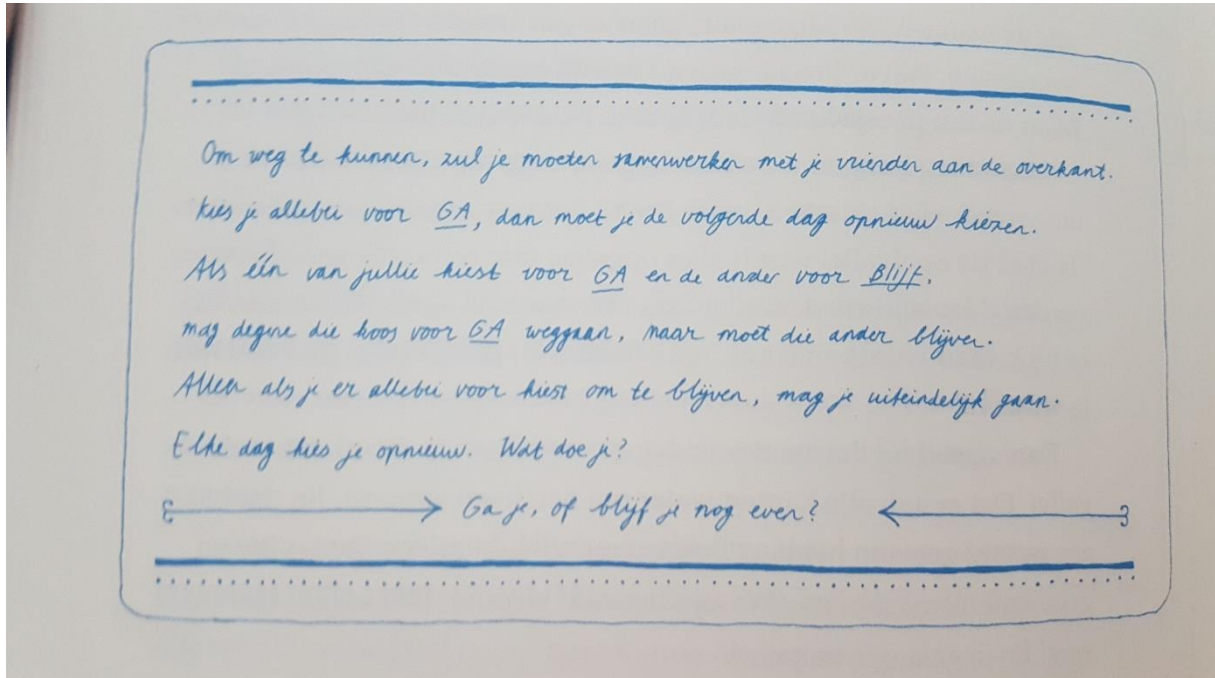 Om weg te kunnen, zul je moeten samenwerken met je vrienden aan de overkant.
Kies je allebei voor GA, dan moet je de volgende dag opnieuw kiezen.
Als één van jullie kiest voor GA en de ander voor Blijf,
mag degene die koos voor GA weggaan, maar moet die ander blijven.
Alleen als je er allebei voor kiest om te blijven, mag je uiteindelijk gaan.
Elke dag kies je opnieuw. Wat doe je?
Ga je, of blijf je nog even?